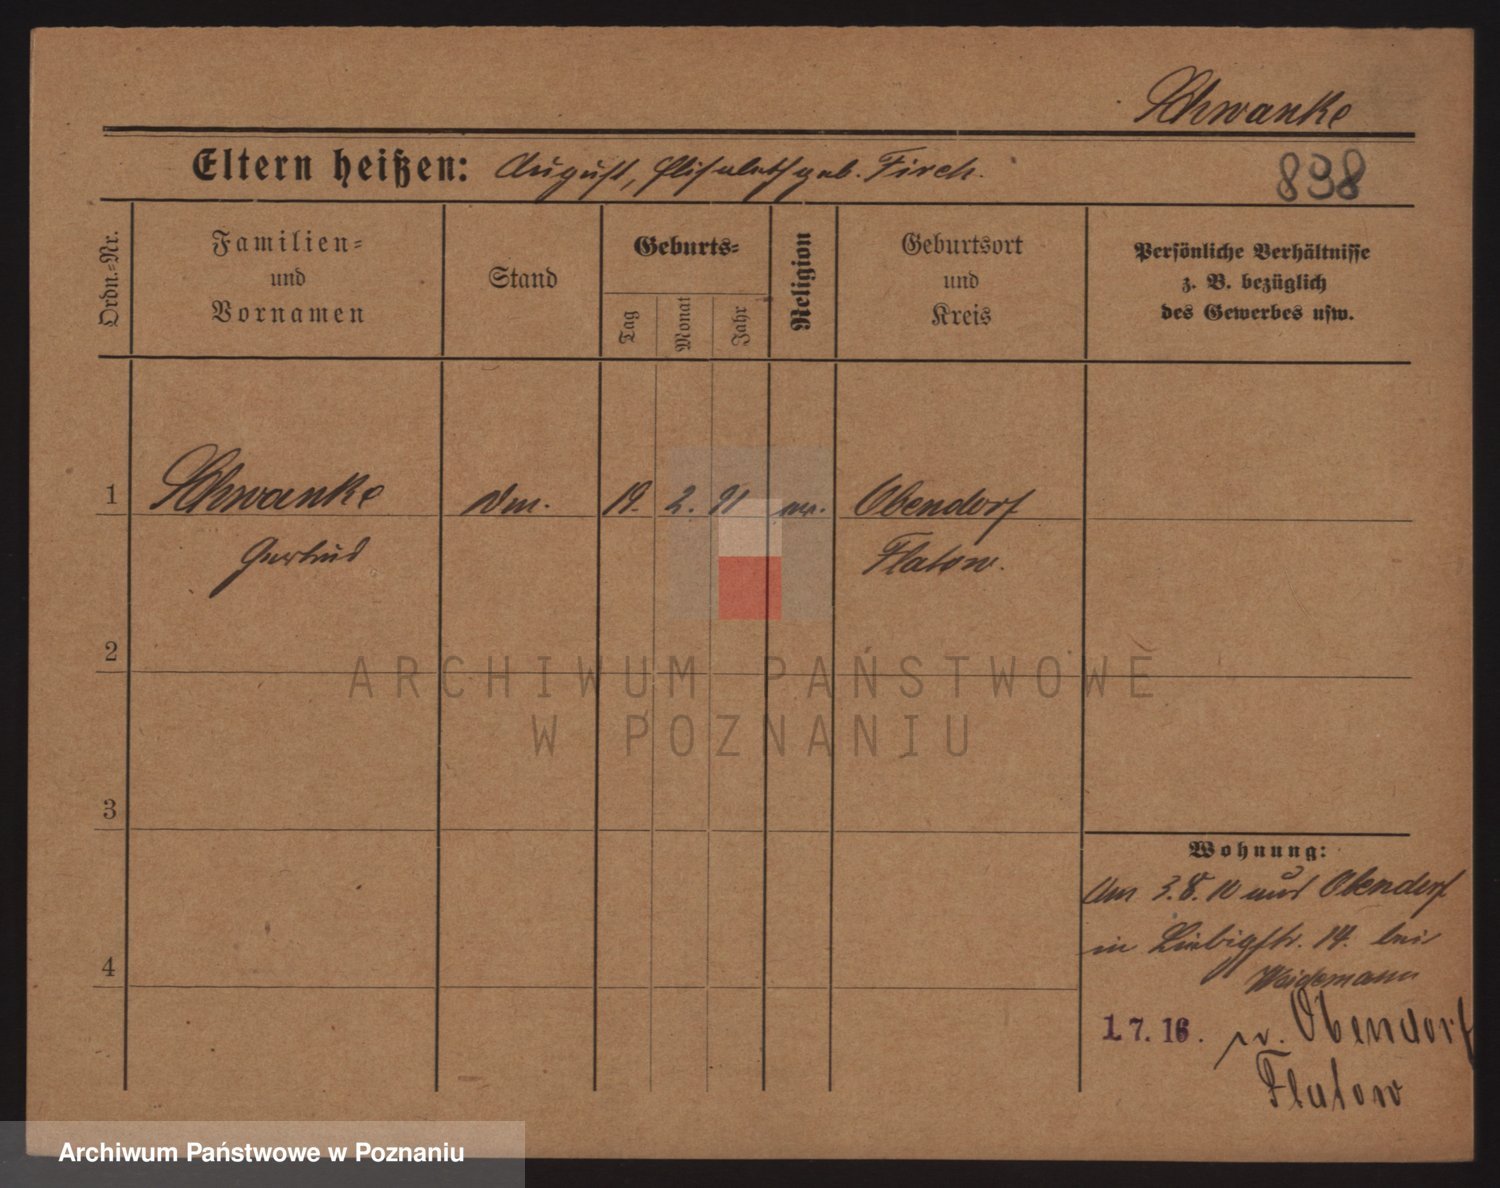 Schwanke
Eltern heißen: August, Elisabeth geb. Firch.
838
Ordn.-Nr.
Familien-
und
Vornamen
Stand
Geburts-
Tag
Monat
Jahr
Religion
Geburtsort
und
Kreis
Persönliche Verhältnisse
z. B. bezüglich
des Gewerbes usw.
1 Schwanke 19. 2. 91 Obendorf
Gertrud Flatow.
2
3
4
ARCHIWUM PAŃSTWOWE
W POZNANIU
Wohnung:
Am 3.8.10 aus Obendorf
in Liebigstr. 14. bei
Weidemann
1.7.16. n. Obendorf
Flatow
Archiwum Państwowe w Poznaniu